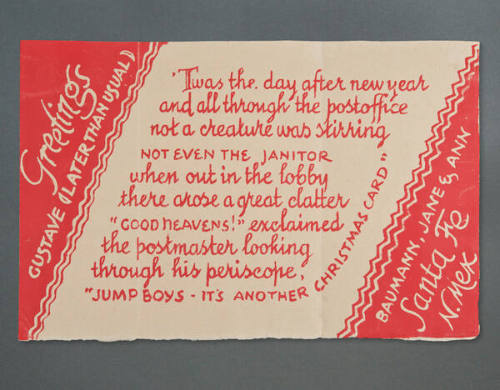 Greetings
(LATER THAN USUAL)
GUSTAVE
'Twas the day after new year
and all through the postoffice
not a creature was stirring
NOT EVEN THE JANITOR
when out in the lobby
there arose a great clatter
"GOOD HEAVENS!" exclaimed
the postmaster looking
through his periscope,
"JUMP BOYS - IT'S ANOTHER CHRISTMAS CARD"
BAUMANN, JANE & ANN
Santa Fe
N. Mex